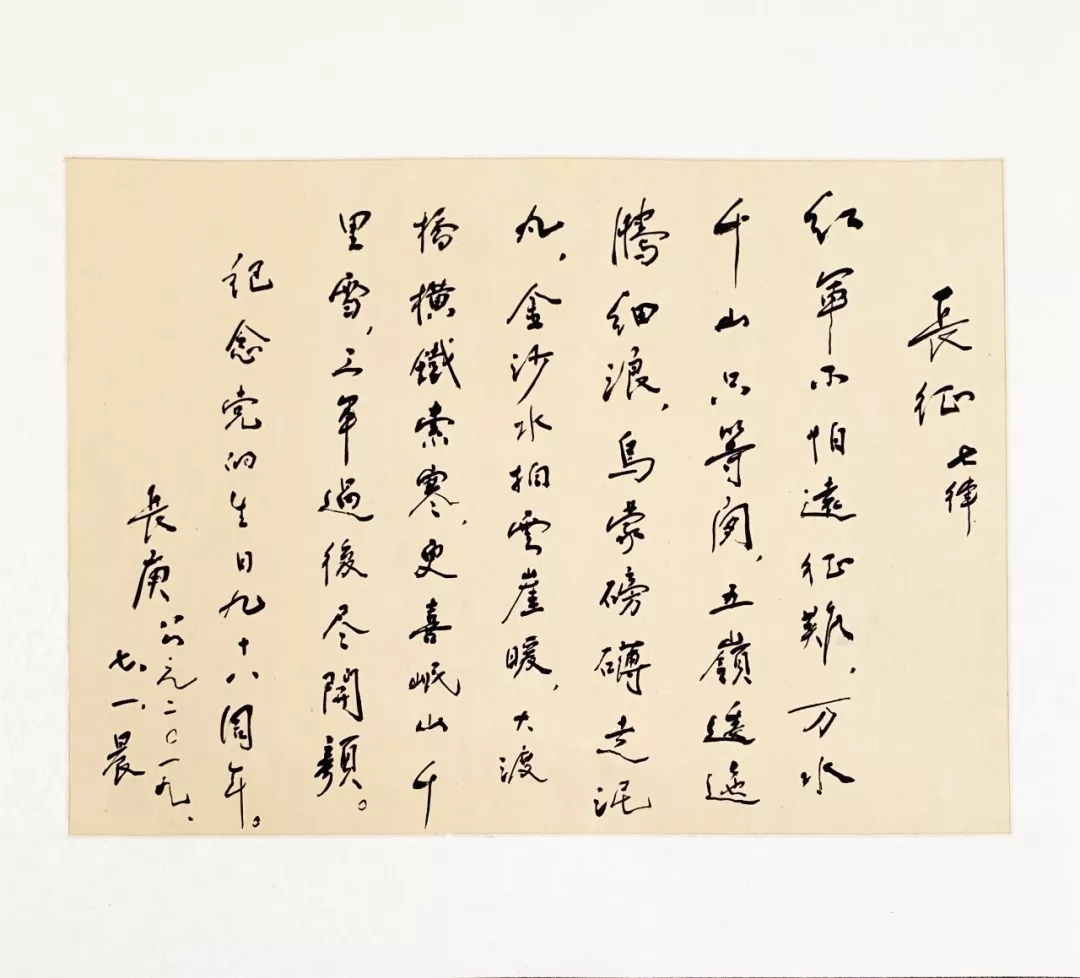 長征 七律
红軍不怕遠征難，万水
千山只等闲，五嶺逶迤
腾细浪，烏蒙磅礴走泥
丸，金沙水拍雲崖暖，大渡
橋橫鐵索寒，更喜岷山千
里雪，三军過後尽開顏。
纪念党的生日九十八周年。
長庚 公元二〇一九、
七、一、晨